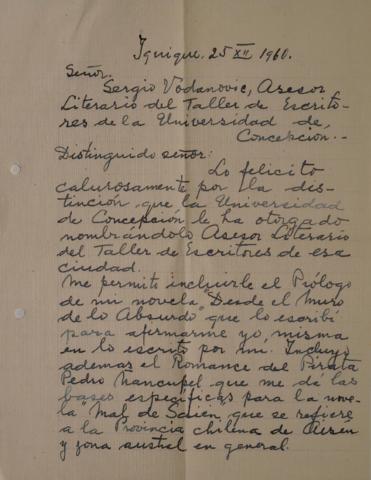 Iquique. 25 XII 1960.
Señor.
Sergio Vodanovic, Asesor
Literario del Taller de Escrito-
res de la Universidad de,
Concepción.-
Distinguido señor:
Lo felicito
calurosamente por la dis-
tinción que la Universidad
de Concepción le ha otorgado
nombrándolo Asesor Literario
del Taller de Escritores de esa
ciudad.
Me permito incluirle el Prólogo
de mi novela "Desde el Muro
de lo Absurdo" que lo escribí
para afirmarme yo, misma
en lo escrito por mi. Incluyo
ademas el Romance del Pirata
Pedro Ñancupel que me dá las
bases específicas para la nove-
la "Mal de que se refiere
a la Provincia chilena de Aisén
y zona austral en general.